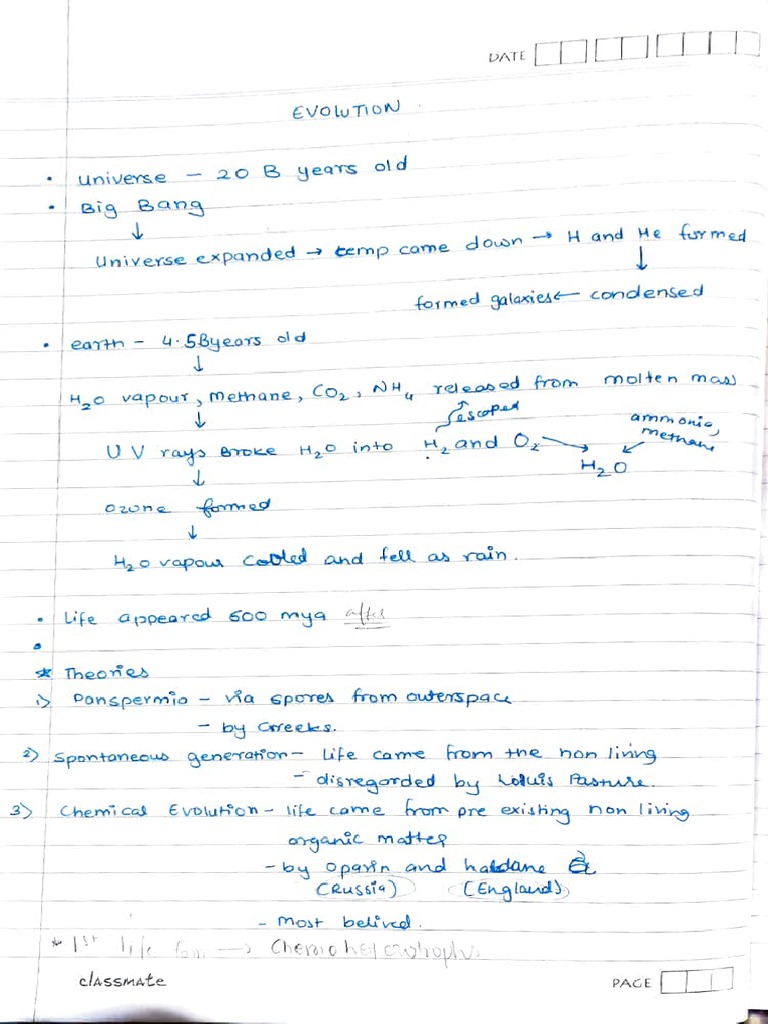 DATE
EVOLUTION
• Universe – 20 B years old
• Big Bang
↓
Universe expanded → temp came down → H and He formed
↓
formed galaxies ← condensed
• earth – 4.5B years old
↓
H₂O vapour, Methane, CO₂, NH₄ released from molten mass
↓ escaped ammonia, methane
UV rays Broke H₂O into H₂ and O₂ → H₂O
↓
ozone formed
↓
H₂O vapour cooled and fell as rain.
• Life appeared 500 mya after
•
* Theories
1) Panspermia – via spores from outerspace
– by Greeks.
2) Spontaneous generation – life came from the non living
– disregarded by Louis Pasture.
3) Chemical Evolution – life came from pre existing non living
organic matter
– by Oparin and haldane
(Russia) (England)
– Most belived.
* 1st life form → Chemoheterotrophs
classmate
PAGE